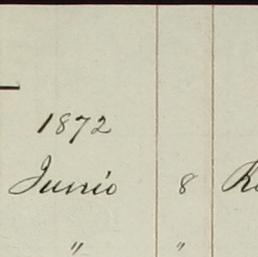 1872
Junio 8
" "